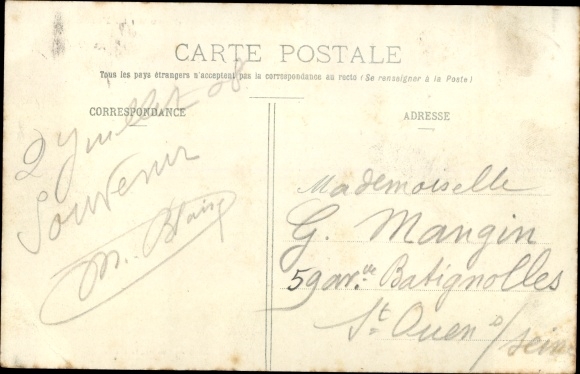 CARTE POSTALE
Tous les pays étrangers n'acceptent pas la correspondance au recto (Se renseigner à la Poste)
CORRESPONDANCE
2 Juillet 08
Souvenir
ADRESSE
Mademoiselle
G. Mangin
59 av.ue Batignolles
St. Ouen s/ Seine